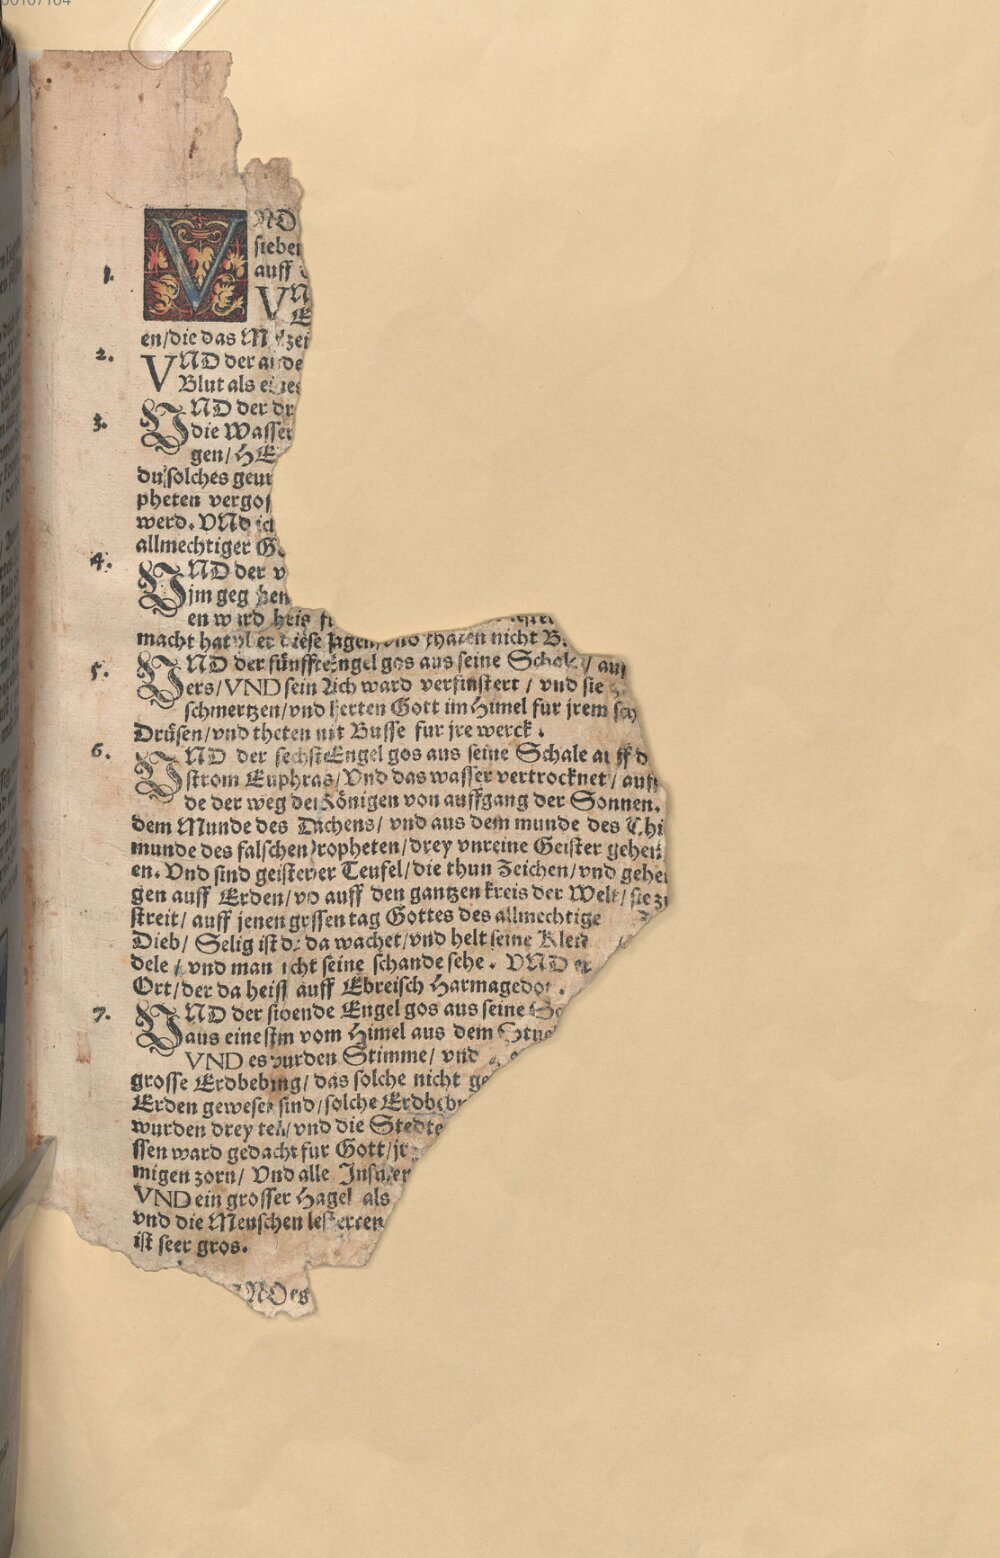 VND
siebe
auff
1.
VN
E
en/die das M zei
2.
VND der ande
Blut als eines
3.
VND der dr
die Wasser
gen/HE
du solches geur
pheten vergos
werd. VNd ich
allmechtiger G
4.
VND der v
jm gegeben
en ward heis
macht hat vber diese Plagen/vnd thaten nicht B
5.
VND der fünffte Engel gos aus seine Schale/ auff
ers/VND sein Reich ward verfinstert / vnd sie
schmertzen/vnd lesterten Gott im Himel fur jrem
Drüsen/vnd theten nit Busse fur jre werck.
6.
VND der sechste Engel gos aus seine Schale auff d
strom Euphras/Vnd das wasser vertrocknet/ auff
de der weg der Königen von auffgang der Sonnen.
dem Munde des Drachens/ vnd aus dem munde des Thi
munde des falschen Propheten/drey vnreine Geister gehen
en. Vnd sind geister der Teufel/die thun Zeichen/vnd gehe
gen auff Erden/vnd auff den gantzen kreis der Welt/ sie
streit/ auff jenen grossen tag Gottes des allmechtige
Dieb/ Selig ist der da wachet/vnd helt seine Kleid
dele / vnd man nicht seine schande sehe. VND er
Ort/der da heisst auff Ebreisch Harmagedon.
7.
VND der siebende Engel gos aus seine Sc
aus eine stim vom Himel aus dem Stuel
VND es wurden Stimme/ vnd
grosse Erdbebung/das solche nicht ge
Erden gewesen sind/solche Erdbebu
wurden drey teil/vnd die Stedte
ssen ward gedacht fur Gott/jr
migen zorn/ Vnd alle Insulen
VND ein grosser Hagel als
vnd die Menschen lesterten
ist seer gros.
VND es